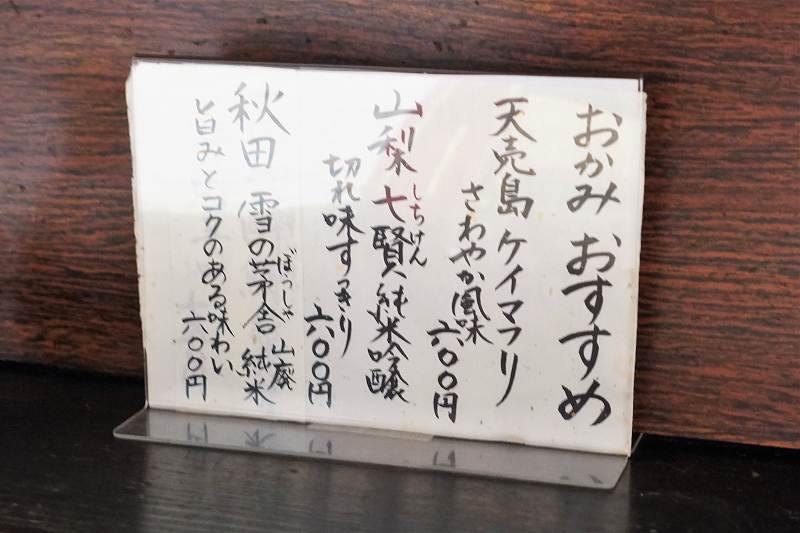 おかみ おすすめ
天売島 ケイマフリ
さわやか風味
六〇〇円
山梨 七賢 純米吟醸
しちけん
切れ味すっきり
六〇〇円
秋田 雪の茅舎 山廃 純米
ぼうしゃ
旨みとコクのある味わい
六〇〇円